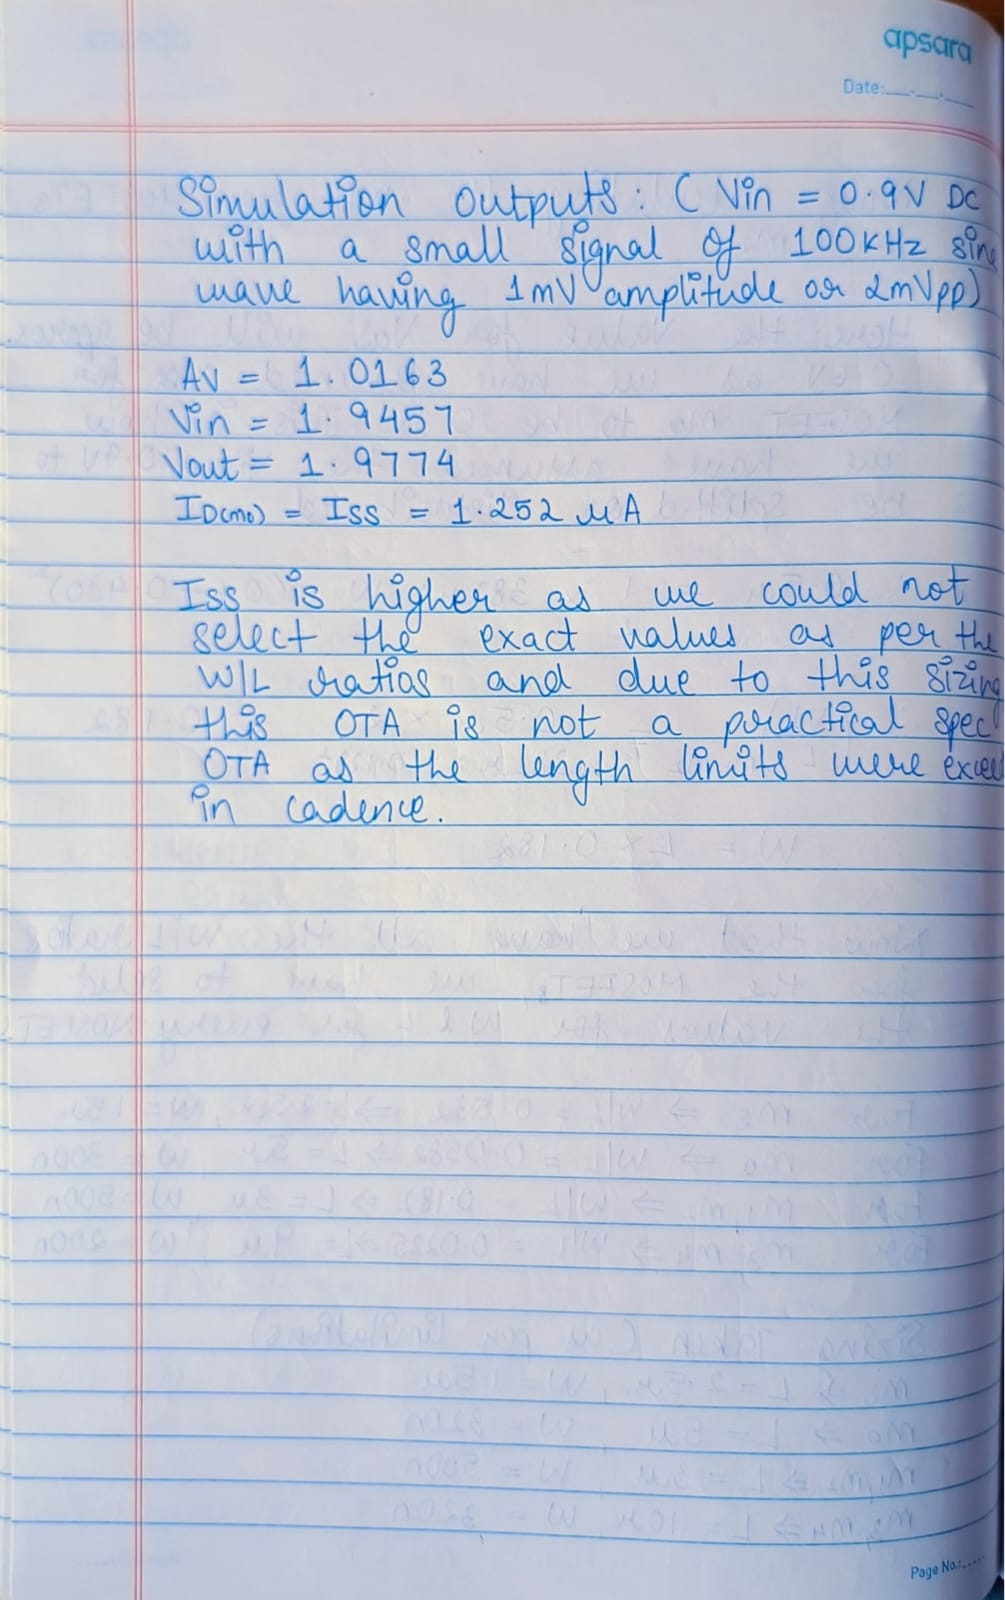 apsara
Date:
Simulation outputs: ( Vin = 0.9V DC
with a small signal of 100KHz sin
wave having 1mV amplitude or 2mVpp)
Av = 1.0163
Vin = 1.9457
Vout = 1.9774
ID(m0) = Iss = 1.252 μA
Iss is higher as we could not
select the exact values as per the
W/L ratios and due to this sizing
this OTA is not a practical spec
OTA as the length limits were excee
in cadence.
Page No.: